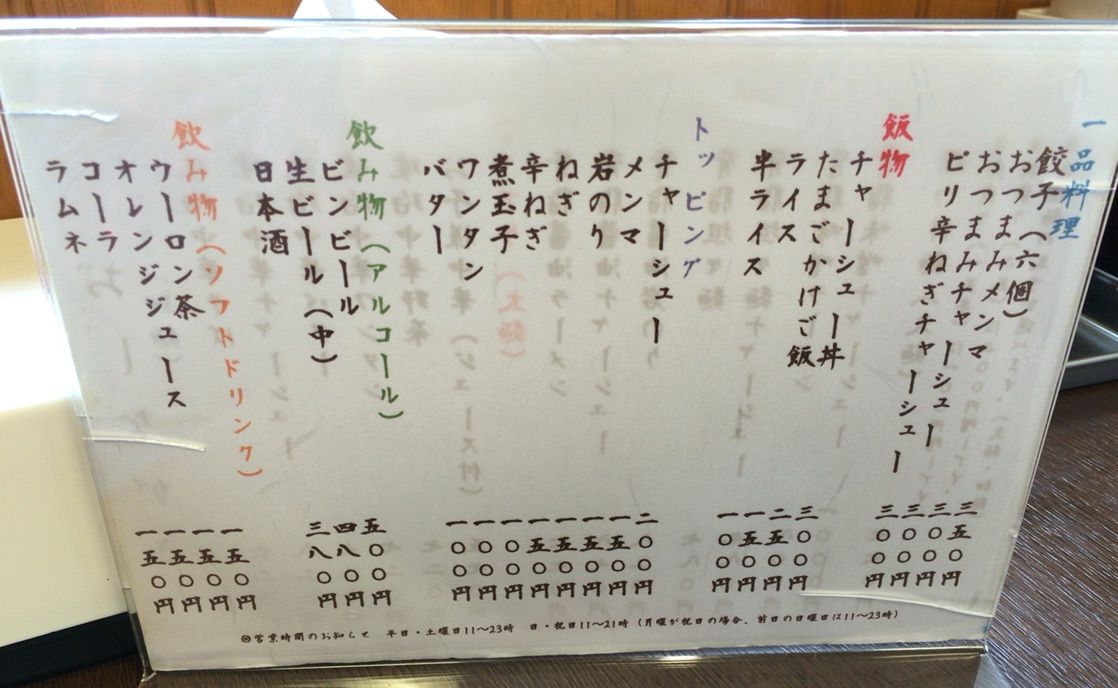 一品料理
餃子（六個） 三五〇円
おつまみメンマ 三〇〇円
おつまみチャーシュー 三〇〇円
ピリ辛ねぎチャーシュー 三〇〇円
飯物
チャーシュー丼 三〇〇円
たまごかけご飯 二五〇円
ライス 一五〇円
半ライス 一〇〇円
トッピング
チャーシュー 二〇〇円
メンマ 一五〇円
岩のり 一五〇円
ねぎ 一五〇円
辛ねぎ 一五〇円
煮玉子 一〇〇円
ワンタン 一〇〇円
バター 一〇〇円
飲み物（アルコール）
ビンビール 五〇〇円
生ビール（中） 四八〇円
日本酒 三八〇円
飲み物（ソフトドリンク）
ウーロン茶 一五〇円
オレンジジュース 一五〇円
コーラ 一五〇円
ラムネ 一五〇円
◎営業時間のお知らせ 平日・土曜日11～23時 日・祝日11～21時（月曜が祝日の場合、前日の日曜日は11～23時）